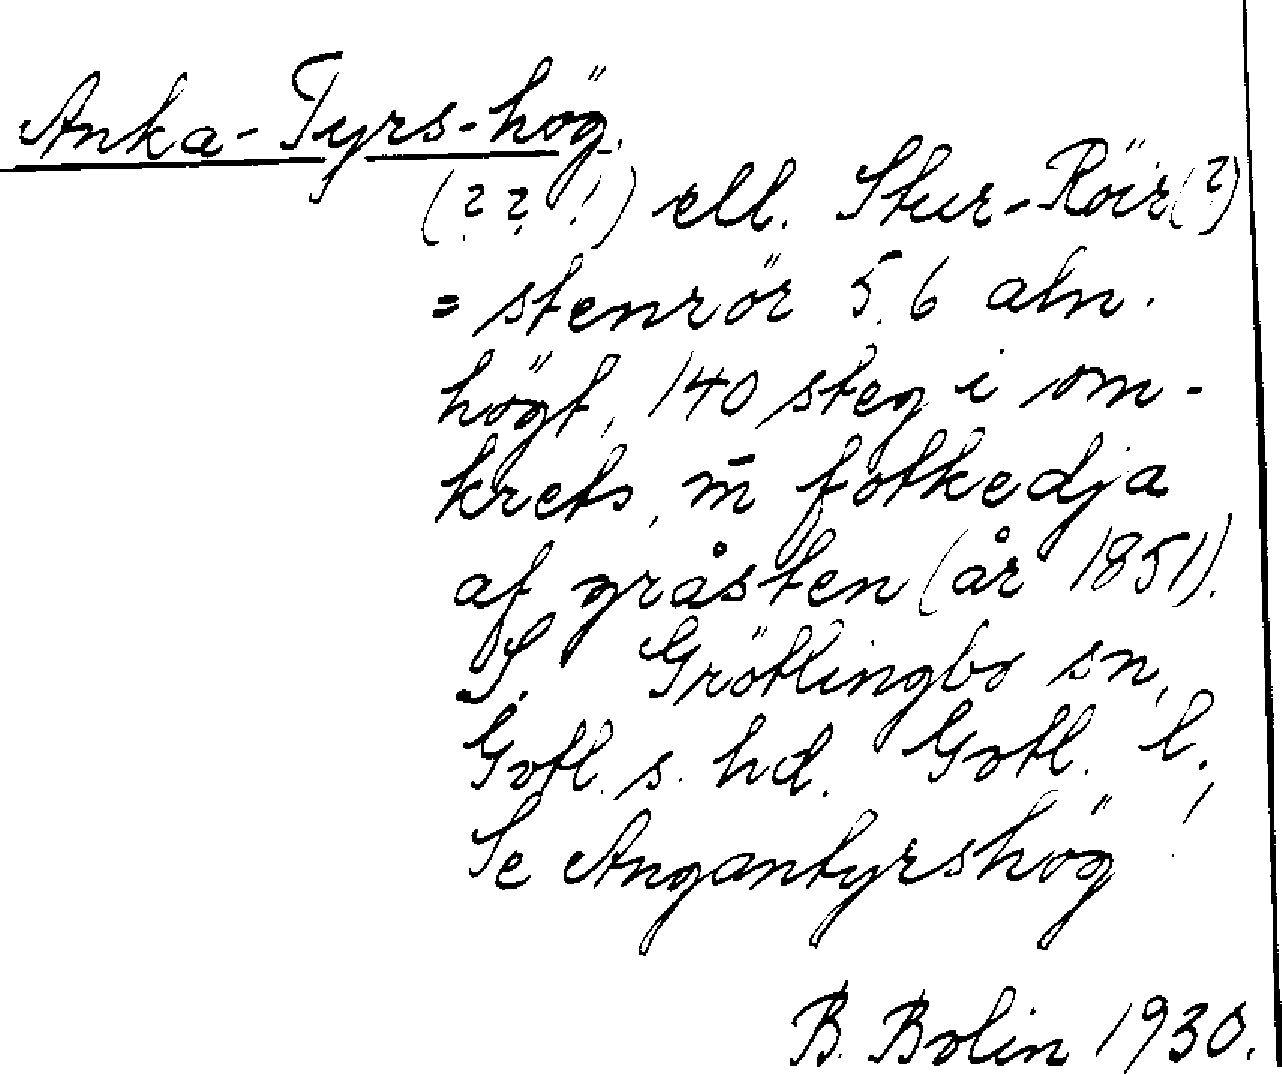 Anka-Tyrs-hög.
(??!) ell. Stur-Röir(?)
= stenrör 5.6 aln.
högt, 140 steg i om-
krets, m̄ fotkedja
af gråsten (år 1851).
S. Grötlingbo sn,
Gotl. s. hd. Gotl. l.,
Se Angantyrshög!
B. Bolin 1930.